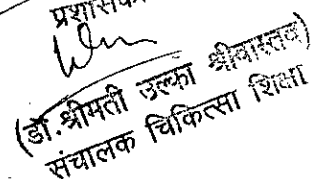 (डॉ.श्रीमती उल्का श्रीवास्तव)
संचालक चिकित्सा शिक्षा